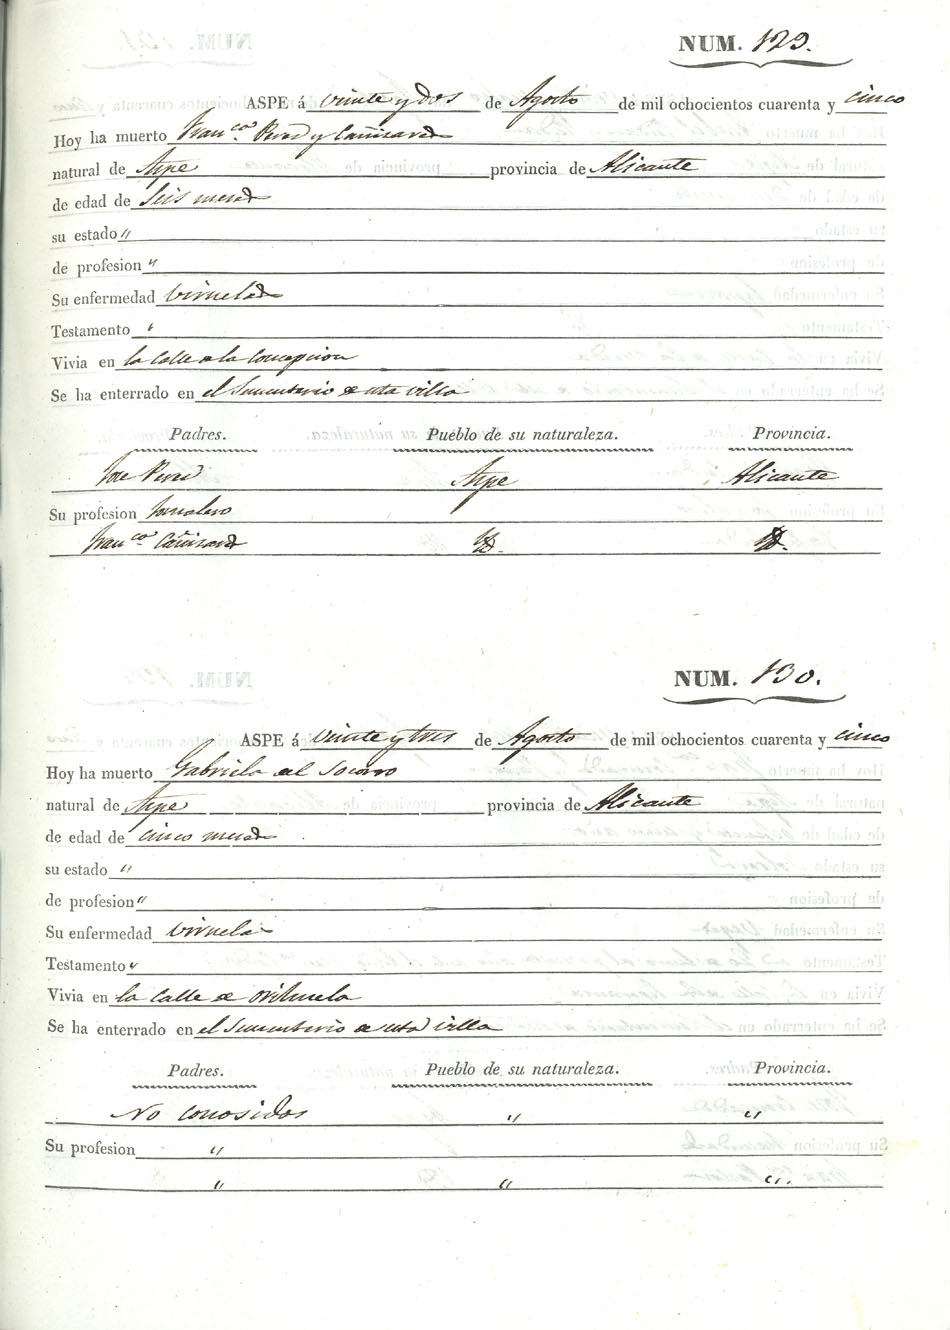 NUM. 129.
ASPE á veinte y dos de Agosto de mil ochocientos cuarenta y cinco
Hoy ha muerto Franco. Peres y Cañisares
natural de Aspe provincia de Alicante
de edad de Seis meses
su estado "
de profesion "
Su enfermedad viruelas
Testamento "
Vivia en la Calle de la Concepcion
Se ha enterrado en el Sementerio de esta villa
Padres. Pueblo de su naturaleza. Provincia.
Jose Peres Aspe Alicante
Su profesion Jornalero
Franca. Cañisares Yd. Yd.
NUM. 130.
ASPE á veinte y tres de Agosto de mil ochocientos cuarenta y cinco
Hoy ha muerto Gabriela del Socorro
natural de Aspe provincia de Alicante
de edad de cinco meses
su estado "
de profesion "
Su enfermedad viruelas
Testamento "
Vivia en la Calle de Orihuela
Se ha enterrado en el Sementerio de esta villa
Padres. Pueblo de su naturaleza. Provincia.
No conosidos " "
Su profesion "
" " ".